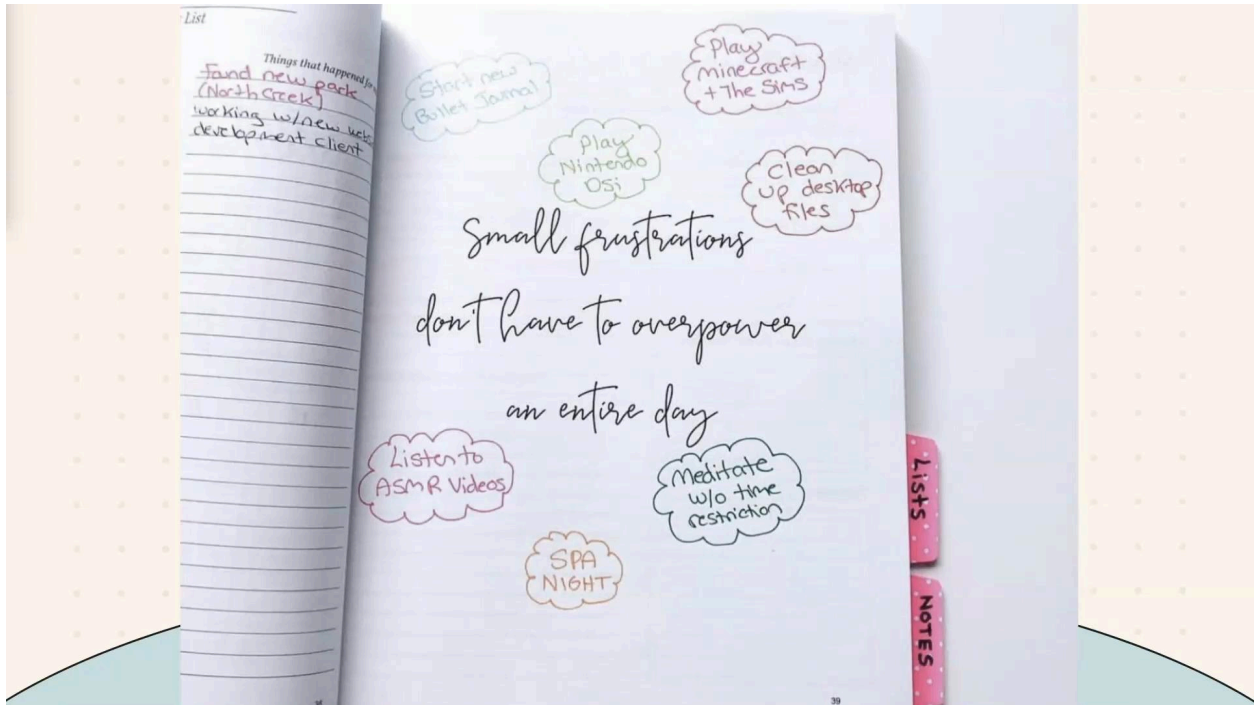 List
Things that happened
Fand new park
(North Creek)
working w/new web
development client
Start new
Bullet Journal
Play
minecraft
+ The Sims
Play
Nintendo
DSi
Clean
up desktop
files
Small frustrations
don't have to overpower
an entire day
Listen to
ASMR Videos
Meditate
w/o time
restriction
SPA
NIGHT
Lists
NOTES
39